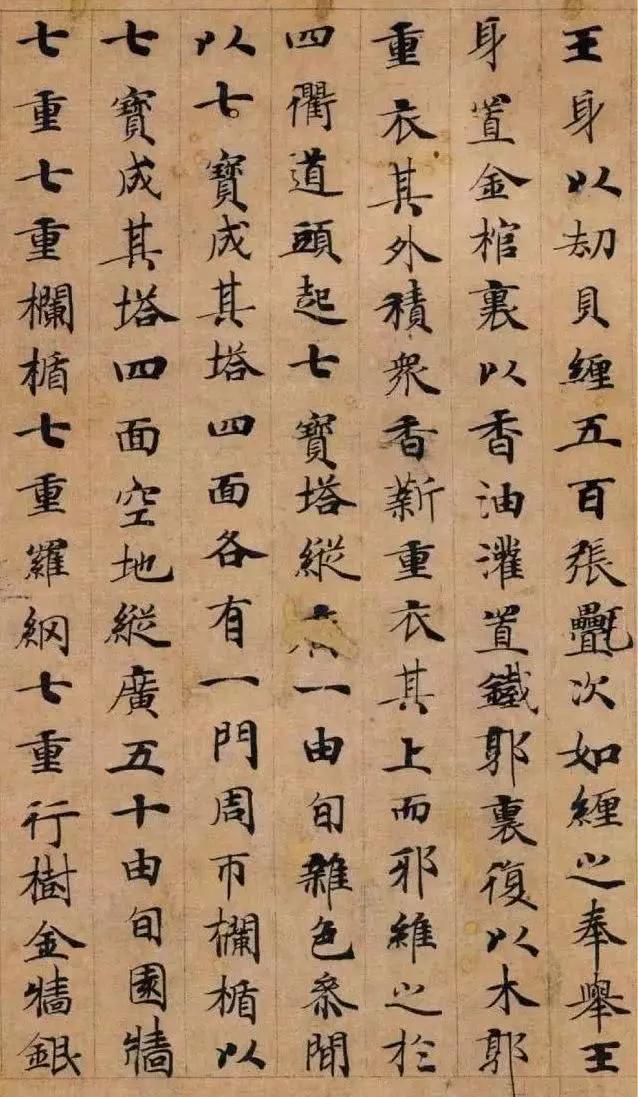 王身以劫貝纏五百張氎次如纏之奉舉王
身置金棺裏以香油灌置鐵郭裏復以木郭
重衣其外積衆香薪重衣其上而邪維之於
四衢道頭起七寶塔縱一由旬雜色叅間
以七寶成其塔四面各有一門周帀欄楯以
七寶成其塔四面空地縱廣五十由旬園牆
七重七重欄楯七重羅網七重行樹金牆銀